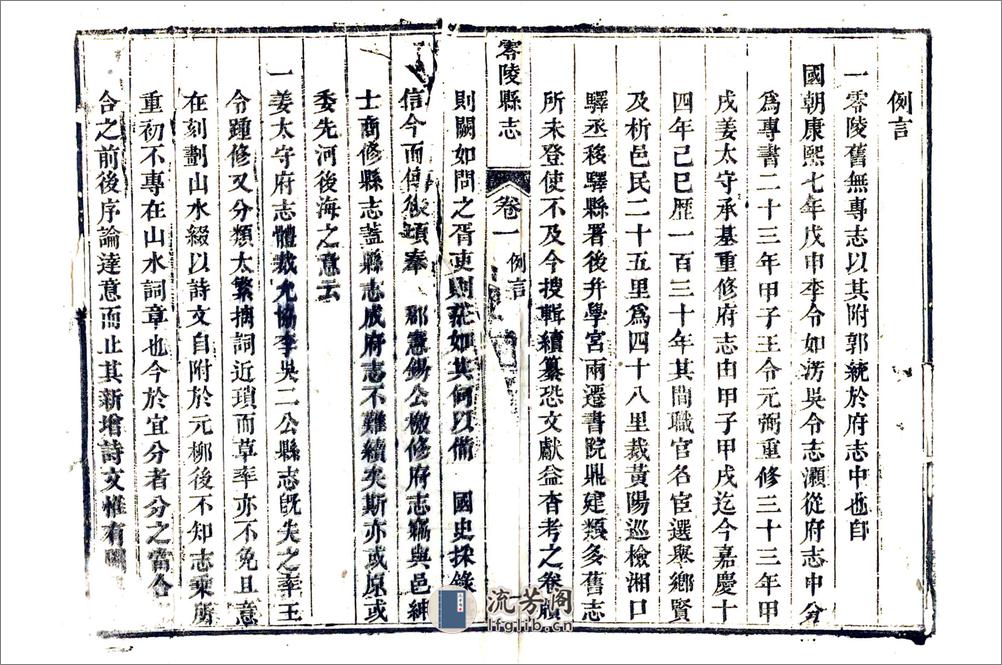 例言
一零陵舊無專志以其附郭統於府志中也自
國朝康熙七年戊申李令如涝吳令志灝從府志中分
為專書二十三年甲子王令元弼重修三十三年甲
戌姜太守承基重修府志由甲子甲戌迄今嘉慶十
四年己巳歷一百三十年其間職官名宦選舉鄉賢
及析邑民二十五里為四十八里裁黃陽巡檢湘口
驛丞移驛縣署後并學宮兩遷書院鼎建類多舊志
所未登使不及今搜輯續纂恐文獻益杳考之卷牘
零陵縣志 卷一 例言
則闕如問之胥吏則茫如其何以備 國史採錄
信今而傳後頃奉 郡憲錫公檄修府志竊與邑紳
士商修縣志蓋縣志成府志不難續矣斯亦或原或
委先河後海之意云
一姜太守府志體裁允協李吳二公縣志旣失之率王
令踵修又分類太繁摛詞近瑣而草率亦不免且意
在刻劃山水綴以詩文自附於元柳後不知志乘所
重初不專在山水詞章也今於宜分者分之當合
合之前後序論達意而止其新增詩文惟有關
流芳阁
lfglib.cn